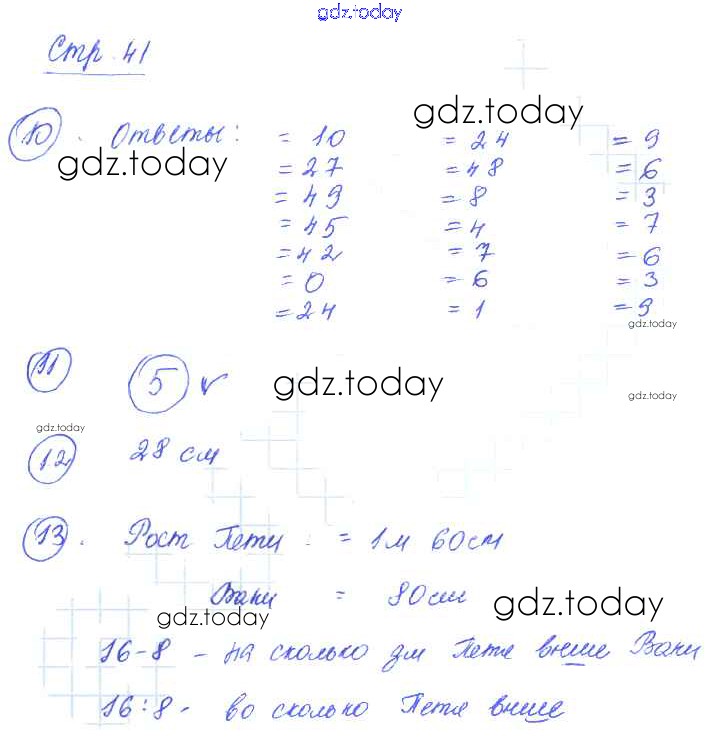 gdz.today
Стр. 41
10. Ответы: = 10 = 24 = 9
gdz.today
gdz.today
= 27 = 48 = 6
= 49 = 8 = 3
= 45 = 4 = 7
= 42 = 7 = 6
= 0 = 6 = 3
= 24 = 1 = 9
gdz.today
11 5 gdz.today
gdz.today
gdz.today
12 28 см
13. Рост Пети : = 1м 60см
Вани = 80см
gdz.today
gdz.today
16-8 - на сколько дм Петя выше Вани
16:8 - во сколько Петя выше